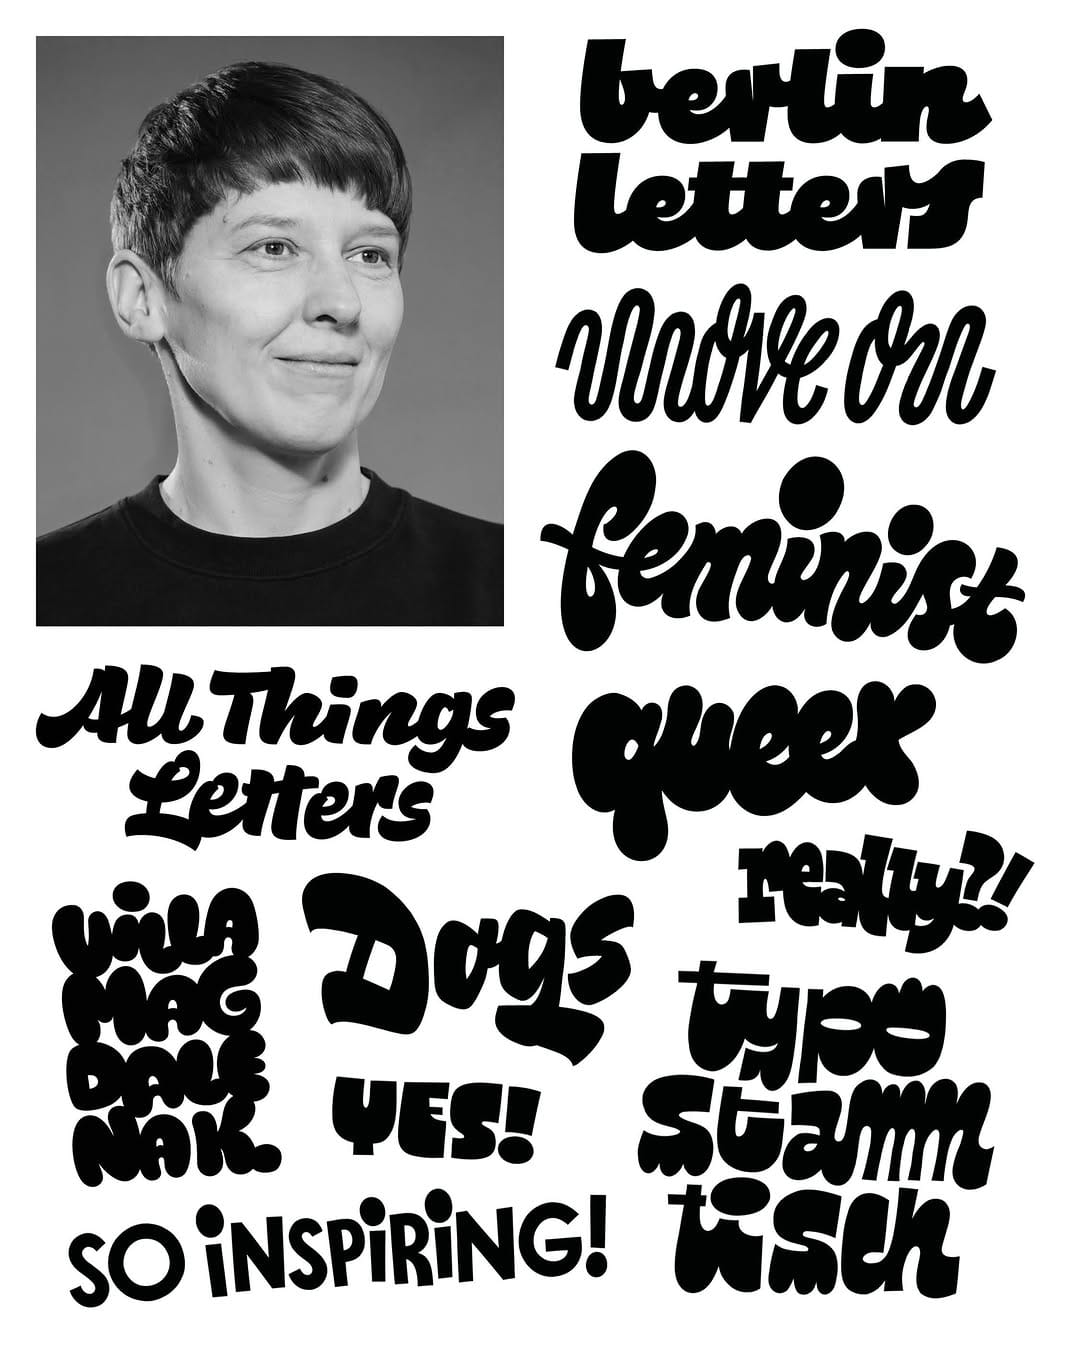 berlin
letters
move on
feminist
All Things
Letters
queer
really?!
ViLLA
MAG
DALE
NAK.
Dogs
YES!
typo
stamm
tisch
SO iNSPiRiNG!